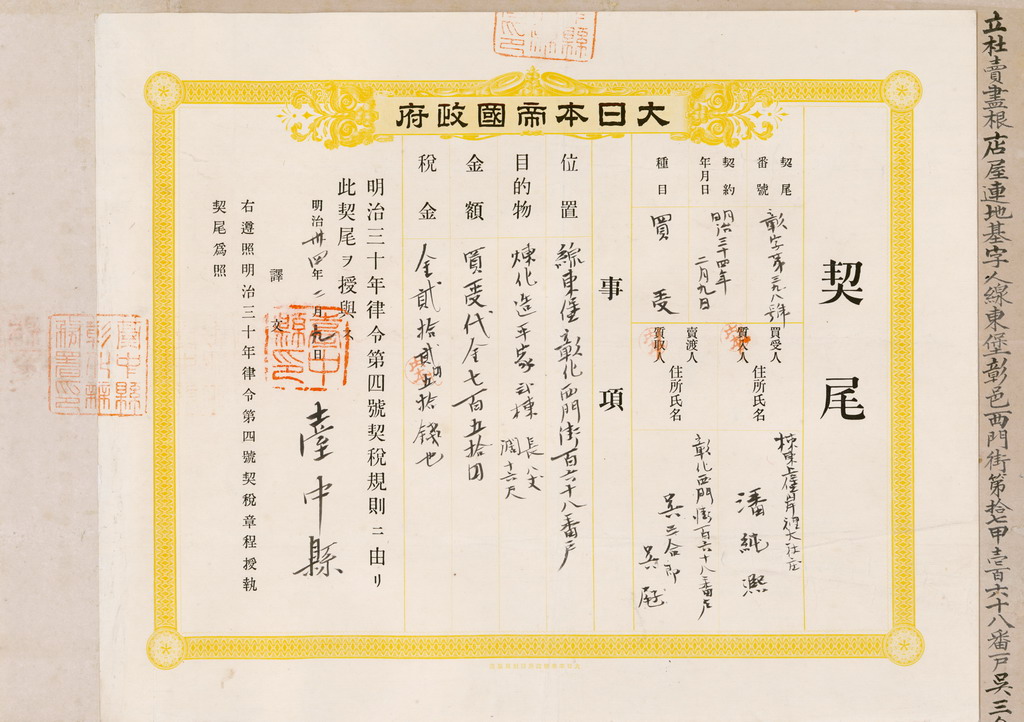 立杜賣盡根店屋連地基字人線東堡彰邑西門街第拾七甲壹百六十八番戶吳三
大日本帝國政府
契尾
契尾番號 彰字第三九八號
契約年月日 明治三十四年二月九日
種目 買受
買受人 住所氏名
質入人
賣渡人 住所氏名
質取人
潘純熙
彰化西門街百六十八番戶
吳三合即
吳
事項
位置 線東堡彰化西門街百六十八番戶
目的物 煉化造平家貳棟 長八丈 濶十六尺
金額 買受代金七百五拾円
稅金 金貳拾貳円五拾錢也
明治三十年律令第四號契稅規則ニ由リ
此契尾ヲ授與ス
明治卅四年二月九日
臺中縣
臺中縣印
譯文
右遵照明治三十年律令第四號契稅章程授執
契尾爲照